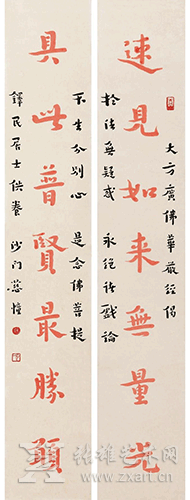 大方廣佛華嚴經偈
速見如来無量光
於法無疑惑 永絕諸戲論
不生分別心 是念佛菩提
具此普賢最勝願
鐸民居士供養 沙門
张雄艺术网
www.zxart.cn